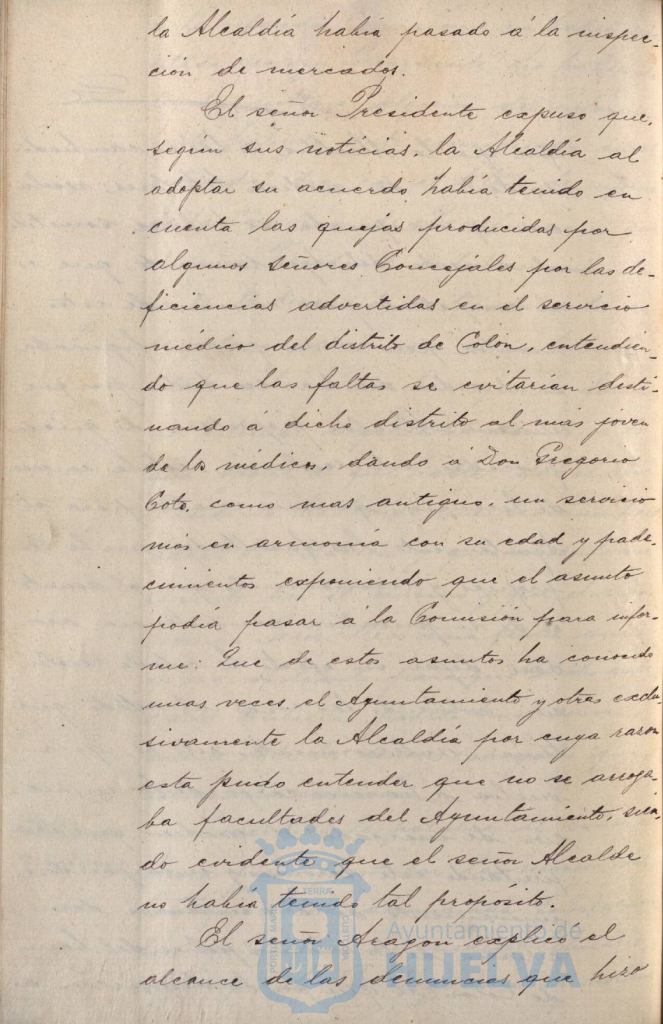 la Alcaldía había pasado á la inspec-
ción de mercados.
El señor Presidente expuso que,
según sus noticias, la Alcaldía al
adoptar su acuerdo había tenido en
cuenta las quejas producidas por
algunos señores Concejales por las de-
ficiencias advertidas en el servicio
médico del distrito de Colón, entendien-
do que las faltas se evitarían desti-
nando á dicho distrito al más joven
de los médicos, dando á Don Gregorio
Coto, como mas antiguo, un servicio
más en armonía con su edad y pade-
cimientos exponiendo que el asunto
podía pasar á la Comisión para infor-
me: Que de estos asuntos ha conocido
unas veces el Ayuntamiento y otras exclu-
sivamente la Alcaldía por cuya razón
esta pudo entender que no se arroga-
ba facultades del Ayuntamiento, sien-
do evidente que el señor Alcalde
no había tenido tal propósito.
El señor Aragón explicó el
alcance de las denuncias que hizo
Ayuntamiento de
HUELVA